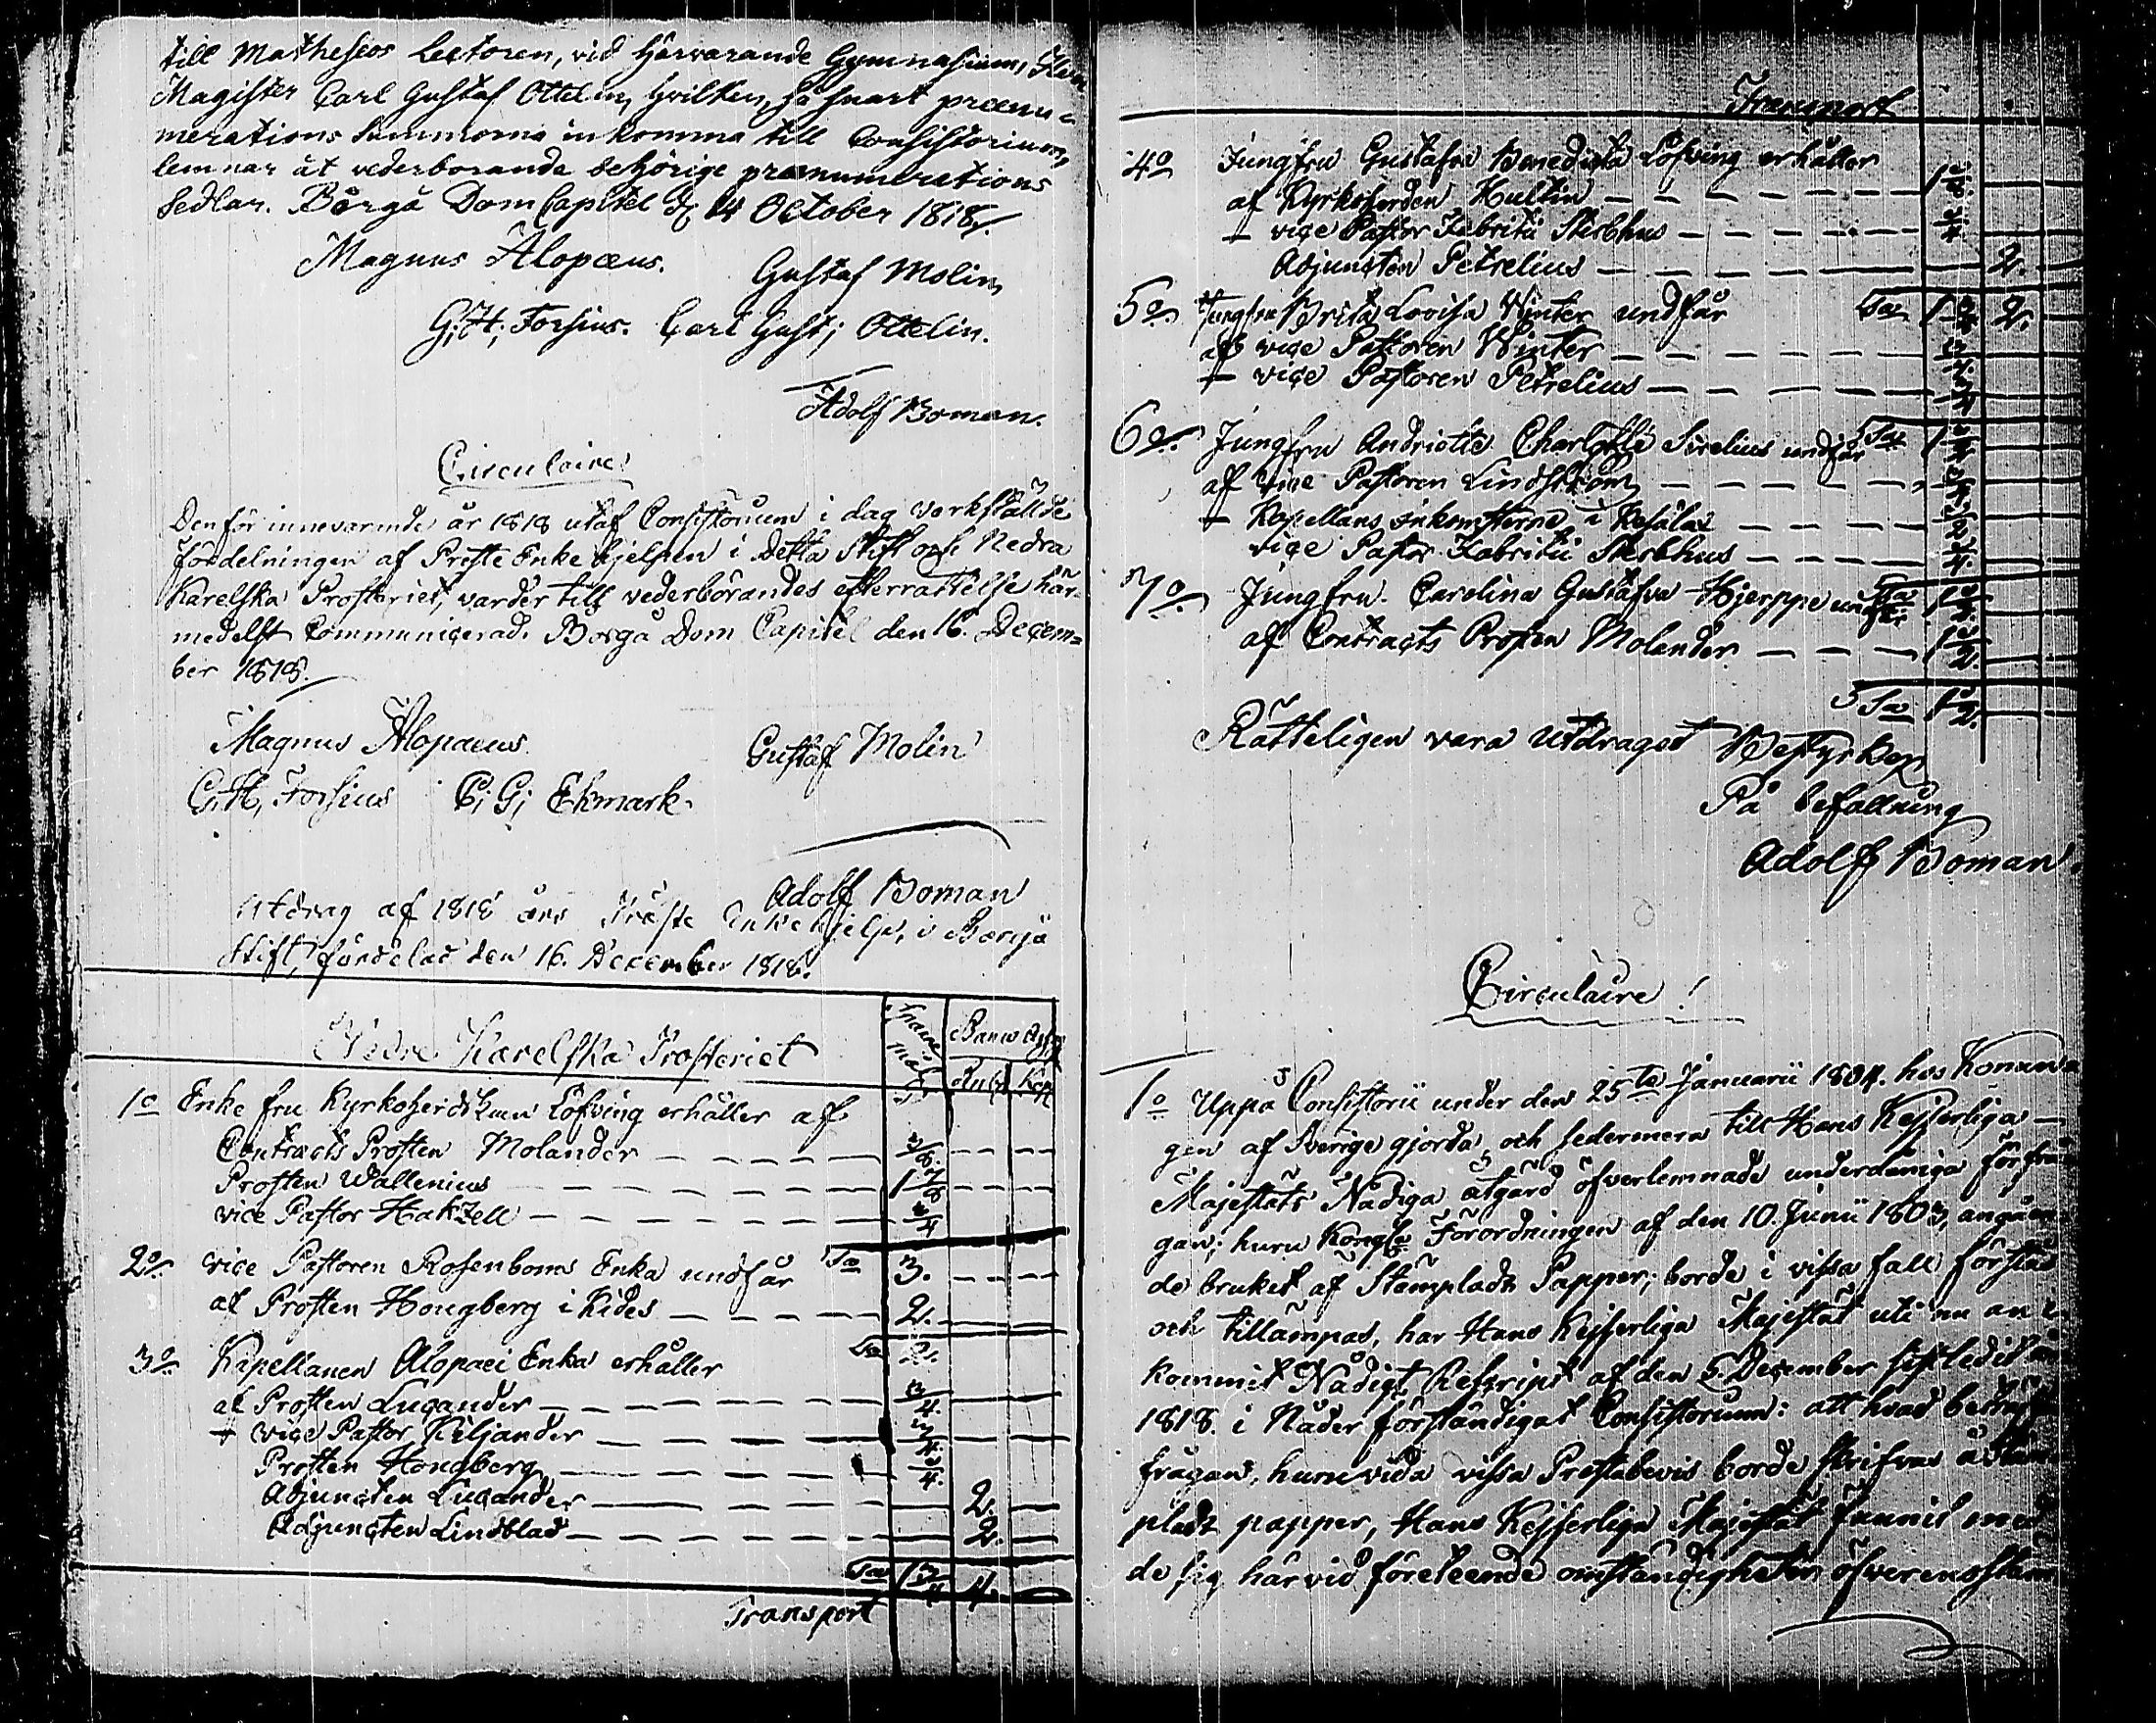 till Matheseos Lectoren, vid härvarande Gymnasium, Herr
Magister Carl Gustaf Ottelin, hvilken, så snart prænu-
merations Summorna inkomma till Consistorium,
lemnar åt vederborande behörige prænumerations
Sedlar. Borgå Dom Capitel d. 14 October 1818.
Magnus Alopæus.
Gustaf Molin,
G; H; Forsius. Carl Gust; Ottelin.
Adolf Boman.
Circulaire!
Den för innevarande år 1818 utaf Consistorium i dag verkställde
fördelningen af Preste Enke hjelpen i detta Stift och Nedra
Karelska Prosteriet, varder till vederbörandes efterrättelse här-
medelst Communicerad. Borgå Dom Capitel den 16. Decem-
ber 1818.
Magnus Alopaeus.
Gustaf Molin
G; H; Forsius C; G; Ekmark.
Adolf Boman
Utdrag af 1818 års Präste Enke hjelp, i Borgå
Stift, fördelad den 16. December 1818.
Nedre Karelska Prosteriet
Banco
Rub. Kop
1o Enke fru Kyrkoherdskan Löfving erhåller af
Contracts Prosten Molander
Prosten Wallenius
vice Pastor Hakzell 3/4
2o. vice Pastoren Rosenboms Enka undfår Sa 3.
af Prosten Hougberg i Kides 2.
3o Kapellanen Alopaei Enka erhåller Sa 2.
af Prosten Lucander 3/4.
+ vice Pastor Kiljander
Prosten Hougberg
Adjuncten Lucander 2.
Adjuncten Lindblad 2.
Sa 4.
Transport
Transport
4o Jungfru Gustafva Benedicta Löfving erhåller
af Kyrkoherden Hultin
+ vice Pastor Fabritii Sterbhus
Adjuncten Petrelius 2.
5o. Jungfru Brita Lovisa Winter undfår Sa 2.
af vice Pastoren Winter
+ vice Pastoren Petrelius
6o. Jungfru Andriette Charlotte Sirelius undfår Sa
af vice Pastoren Lindström
+ Kapellans inkomsterne i Kesälax
vice Pastor Fabritii Sterbhus
7o. Jungfru Carolina Gustafva Hjerppe undfår Sa
af Contracts Prosten Molander 1 1/2.
Sa 1 1/2.
Rätteligen vara utdraget Bestyrker
På befallning
Adolf Boman.
Circulaire!
1o Uppå Consistorii under den 25te Januarii 1804. hos Konun-
gen af Sverige gjorda, och sedermera till Hans Kejserliga
Majestäts Nådiga åtgärd öfverlemnade underdåniga förfrå-
gan; huru Kongla Förordningen af den 10. Junii 1803, angåen-
de bruket af Stämpladt Papper, borde i vissa fall förstås
och tillämpas, har Hans Kejserliga Majestät uti nu an-
kommit Nådigt Rescript af den 5. December sistledit år
1818. i Nåder förständigat Consistorium: att hvad beträffar
frågan, huruvida vissa Prestabevis borde skrifvas å Stäm-
pladt papper, Hans Kejserliga Majestät funnit med
de sig härvid företeende omständigheter öfverensstäm-